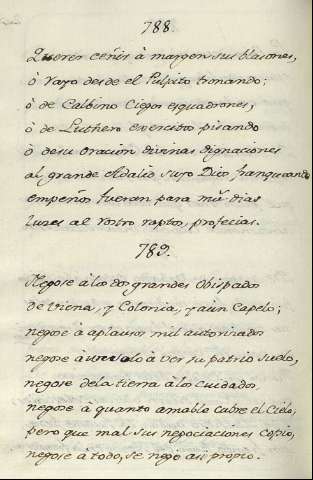 788.
Querer ceñir à margen sus blasones,
ò rayo desde el Pulpito tronando;
ò de Calbino Ciegos esquadrones,
ò de Luthero exercitos pisando
ò de su oracion divinas dignaciones
al grande Adalid suyo Dios franqueando
empeños fueran para mil dias
luzes al rostro raptos, profecias.
789.
Negose à los dos grandes Obispados
de Viena, y Colonia, y aùn Capelo;
negose à aplausos mil autorizados
negose à à ver su patrio suelo,
negose de la tierra à los Cuidados
negose à quanto amable cubre el Cielo,
pero que mal sus negociaciones Copio,
negose à todo, se negò asi proprio.